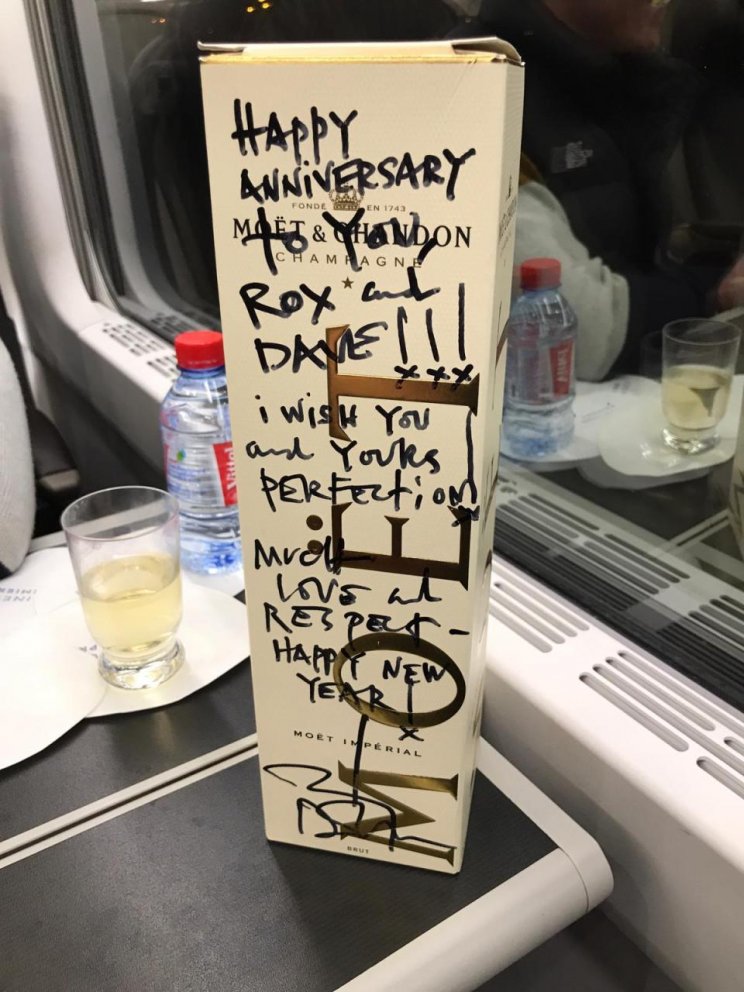 HAPPY
ANNIVERSARY
FONDÉ EN 1743
to YOU,
MOËT & CHANDON
CHAMPAGNE
ROX and
DAVE!!!
xxx
i WISH YOU
and YOURS
PERFECTION
MUCH
LOVE and
RESPECT -
HAPPY NEW
YEAR!
x
MOËT IMPÉRIAL
MOËT
BRUT
Vittel